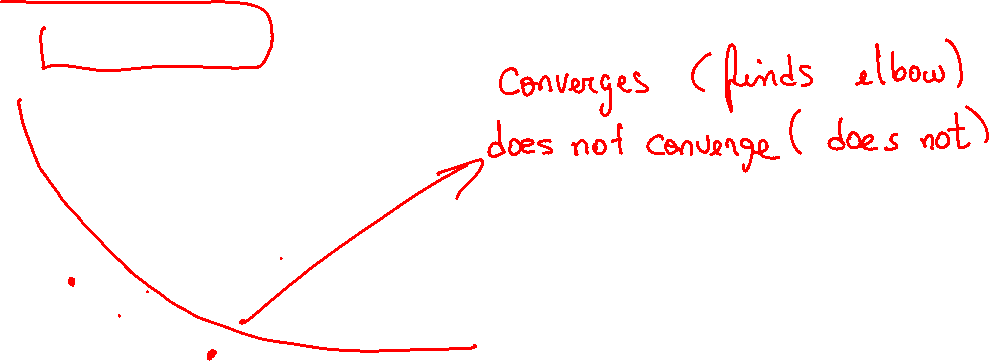 Converges (finds elbow)
does not converge (does not)